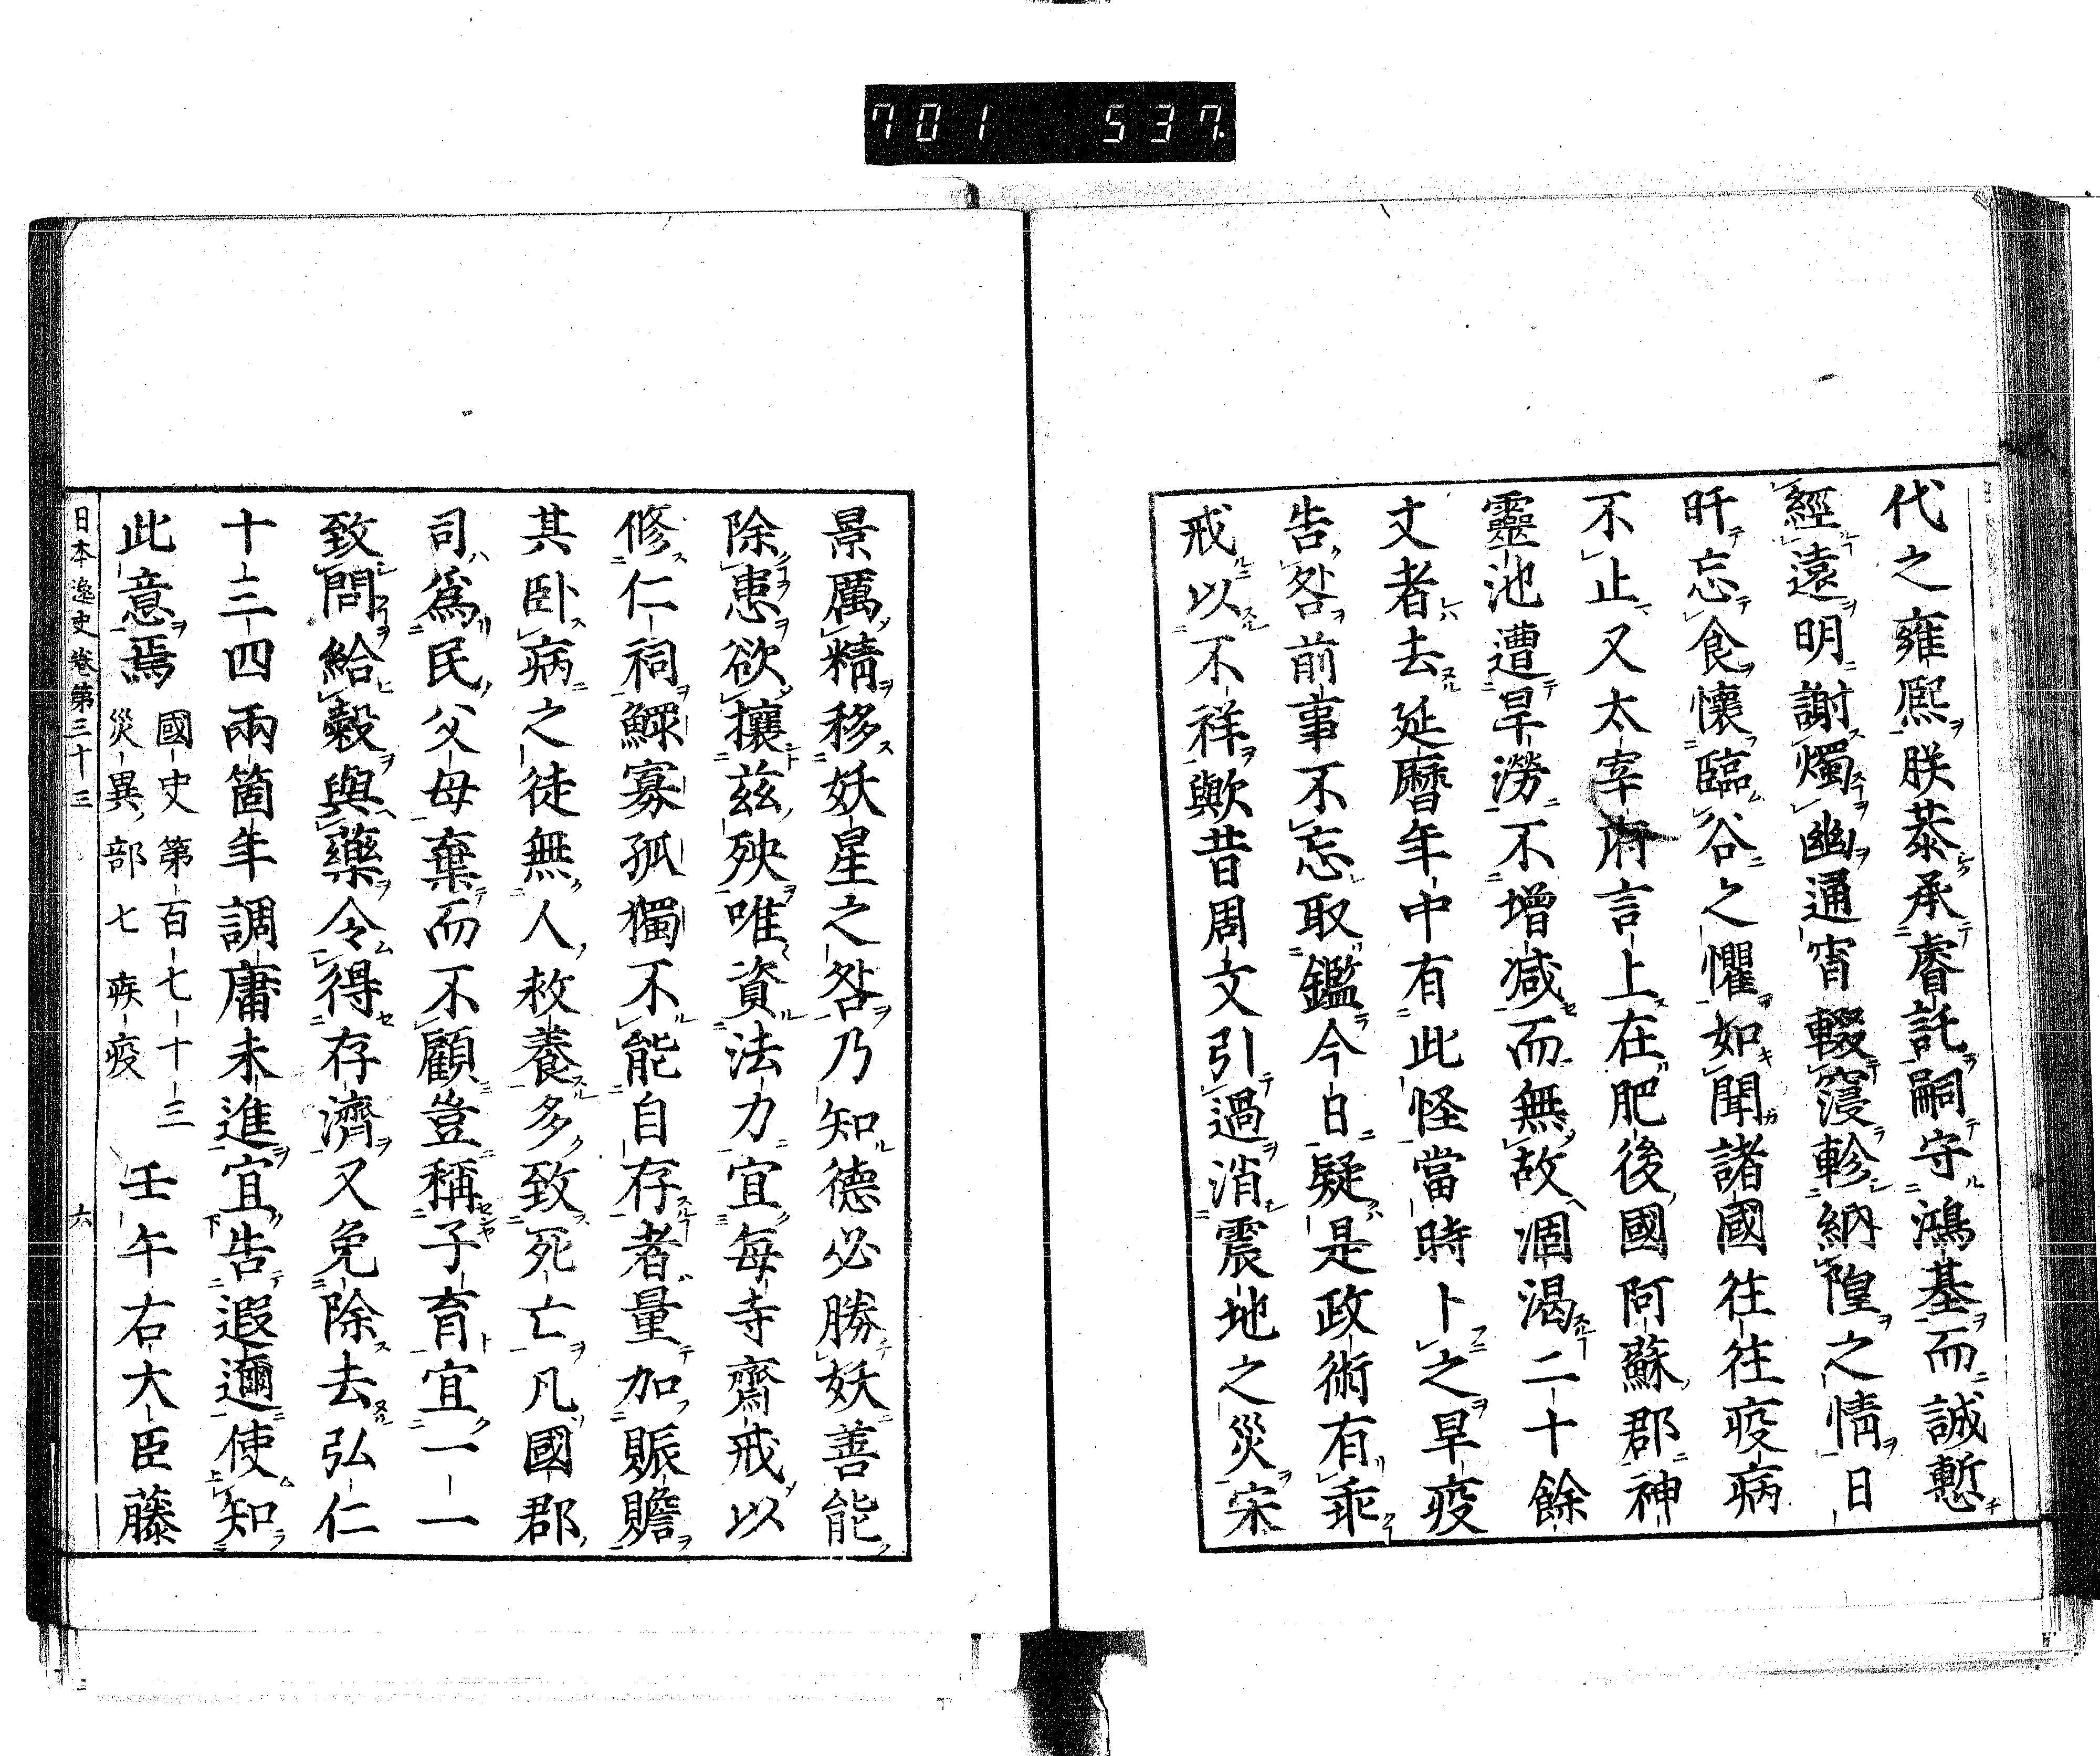 701 537
代之雍熈朕恭承睿託嗣守鴻基而誠慙
經遠明謝燭幽通宵輟寝軫納隍之情日
旰忘食懷臨谷之懼如聞諸國往往疫病
不止又太宰府言上在肥後國阿蘇郡神
靈池遭旱澇不增減而無故涸渴二十餘
丈者去延曆年中有此怪當時卜之旱疫
告咎前事不忘取鑑今日疑是政術有乖
戒以不祥歟昔周文引過消震地之災宋
景厲精移妖星之咎乃知德必勝妖善能
除患欲攘兹殃唯資法力宜每寺齋戒以
修仁祠鰥寡孤獨不能自存者量加賑贍
其卧病之徒無人救養多致死亡凡國郡
司爲民父母棄而不顧豈稱子育宜一一
致問給穀與藥令得存濟又免除去弘仁
十三四兩箇年調庸未進宜告遐邇使知
此意焉 國史第百七十三 災異部七疾疫 壬午右大臣藤
日本逸史卷第三十三 六